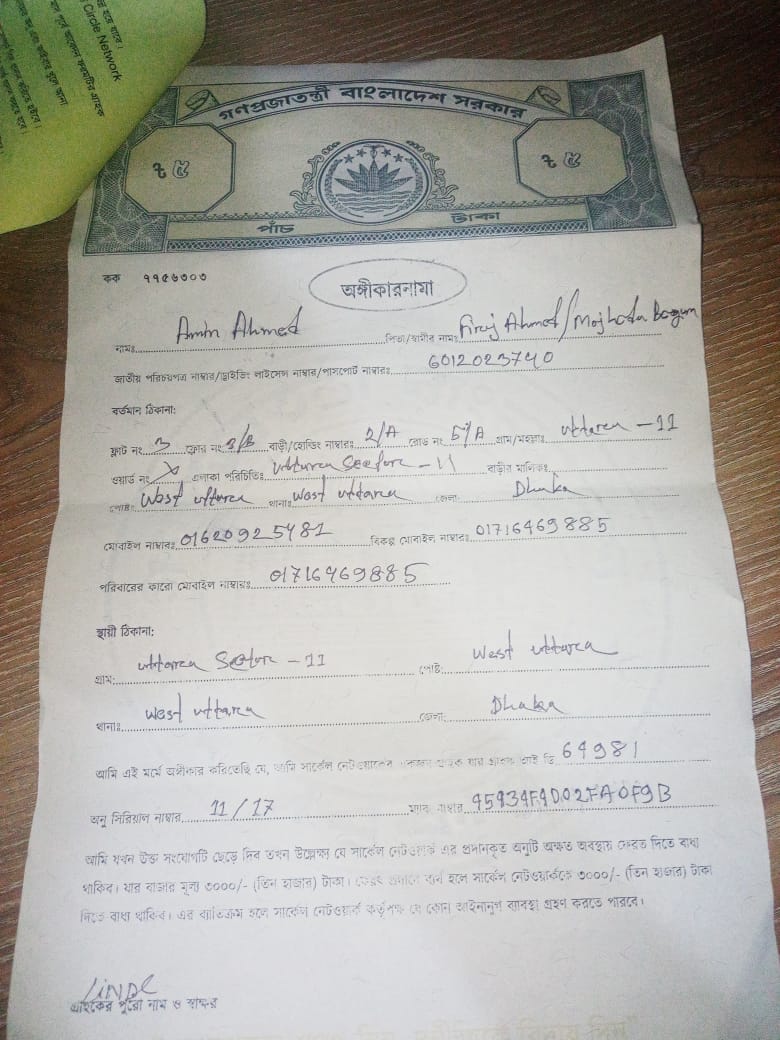 হয়ে যাবে।
Circle Network
গণপ্রজাতন্ত্রী বাংলাদেশ সরকার
৳ ৫
৳ ৫
পাঁচ টাকা
কক ৭৭৫৬৩০৩
অঙ্গীকারনামা
নামঃ Amin Ahmed পিতা/স্বামীর নামঃ Firoj Ahmed/Mojheda Begum
জাতীয় পরিচয়পত্র নাম্বার/ড্রাইভিং লাইসেন্স নাম্বার/পাসপোর্ট নাম্বারঃ 6012023740
বর্তমান ঠিকানা:
ফ্লাট নং 3 ফ্লোর নং 3/B বাড়ী/হোল্ডিং নাম্বারঃ 2/A রোড নং 5/A গ্রাম/মহল্লাঃ uttara - 11
ওয়ার্ড নং X এলাকা পরিচিতিঃ uttara Sector - 11 বাড়ীর মালিকঃ
পোষ্টঃ West uttara থানাঃ West uttara জেলা: Dhaka
মোবাইল নাম্বারঃ 01620925481 বিকল্প মোবাইল নাম্বারঃ 01716469885
পরিবারের কারো মোবাইল নাম্বারঃ 01716469885
স্থায়ী ঠিকানা:
গ্রাম: uttara Sector - 11 পোষ্ট: West uttara
থানাঃ West uttara জেলা: Dhaka
আমি এই মর্মে অঙ্গীকার করিতেছি যে, আমি সার্কেল নেটওয়ার্কের একজন গ্রাহক যার গ্রাহক আই ডি 64981
অনু সিরিয়াল নাম্বার 11/17 ম্যাক নাম্বার 45934F4D02FA0F9B
আমি যখন উক্ত সংযোগটি ছেড়ে দিব তখন উল্লেক্ষ্য যে সার্কেল নেটওয়ার্ক এর প্রদানকৃত অনুটি অক্ষত অবস্থায় ফেরত দিতে বাধ্য
থাকিব। যার বাজার মূল্য ৩০০০/- (তিন হাজার) টাকা। ফেরৎ প্রদানে ব্যর্থ হলে সার্কেল নেটওয়ার্ককে ৩০০০/- (তিন হাজার) টাকা
দিতে বাধ্য থাকিব। এর ব্যতিক্রম হলে সার্কেল নেটওয়ার্ক কর্তৃপক্ষ যে কোন আইনানুগ ব্যাবস্থা গ্রহণ করতে পারবে।
গ্রাহকের পুরো নাম ও স্বাক্ষর